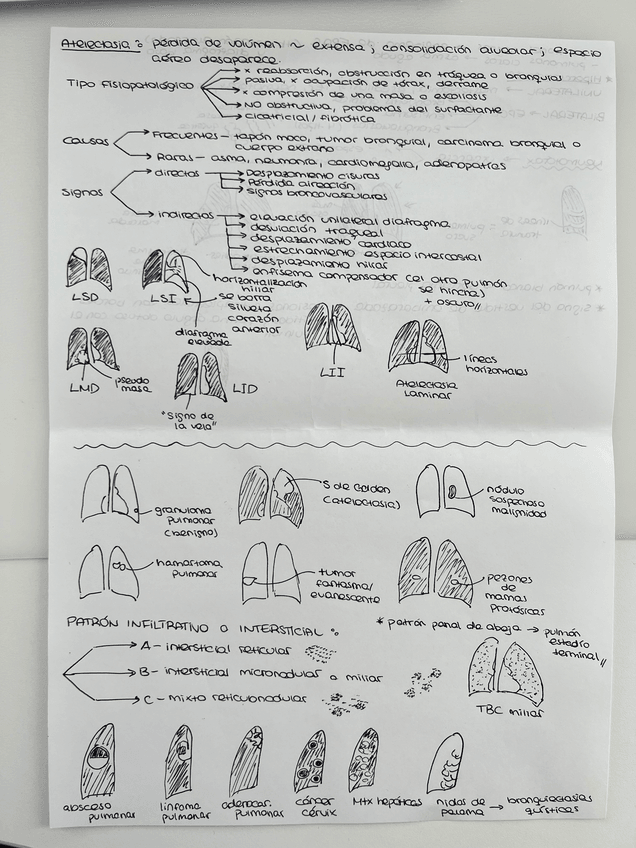 Atelectasia: pérdida de volúmen ~ extensa; consolidación alveolar; espacio
aéreo desaparece.
Tipo fisiopatológico
x reabsorción, obstrucción en tráquea o bronquios
pasiva, x ocupación de tórax, derrame
x compresión de una masa o escoliosis
NO obstructiva, problemas del surfactante
cicatricial / fibrótica
Causas
Frecuentes - tapón moco, tumor bronquial, carcinoma bronquial o
cuerpo extraño
Raras - asma, neumonía, cardiomegalia, adenopatías
Signos
directos
Desplazamiento cisuras
Pérdida aireación
signos broncovasculares
indirectos
elevación unilateral diafragma
desviación traqueal
desplazamiento cardíaco
estrechamiento espacio intercostal
desplazamiento hiliar
enfisema compensador (el otro pulmón
se hincha)
+ oscuro//
LSD
LSI
horizontalización
hiliar
se borra
silueta
corazón
anterior
LMD
pseudo
masa
diafragma
elevado
LID
"signo de
la vela"
LII
Atelectasia
Laminar
líneas
horizontales
granuloma
pulmonar
(benigno)
S de Golden
(atelectasia)
nódulo
sospechoso
malignidad
hamartoma
pulmonar
tumor
fantasma/
evanescente
pezones
de
mamas
protésicas
PATRÓN INFILTRATIVO O INTERSTICIAL:
* patrón panal de abeja → pulmón
estadío
terminal//
A - intersticial reticular
B - intersticial micronodular o miliar
C - mixto reticulonodular
TBC miliar
absceso
pulmonar
linfoma
pulmonar
adenocar.
pulmonar
cáncer
cérvix
Mtx hepáticas
nidos de
paloma → bronquiectasias
quísticas